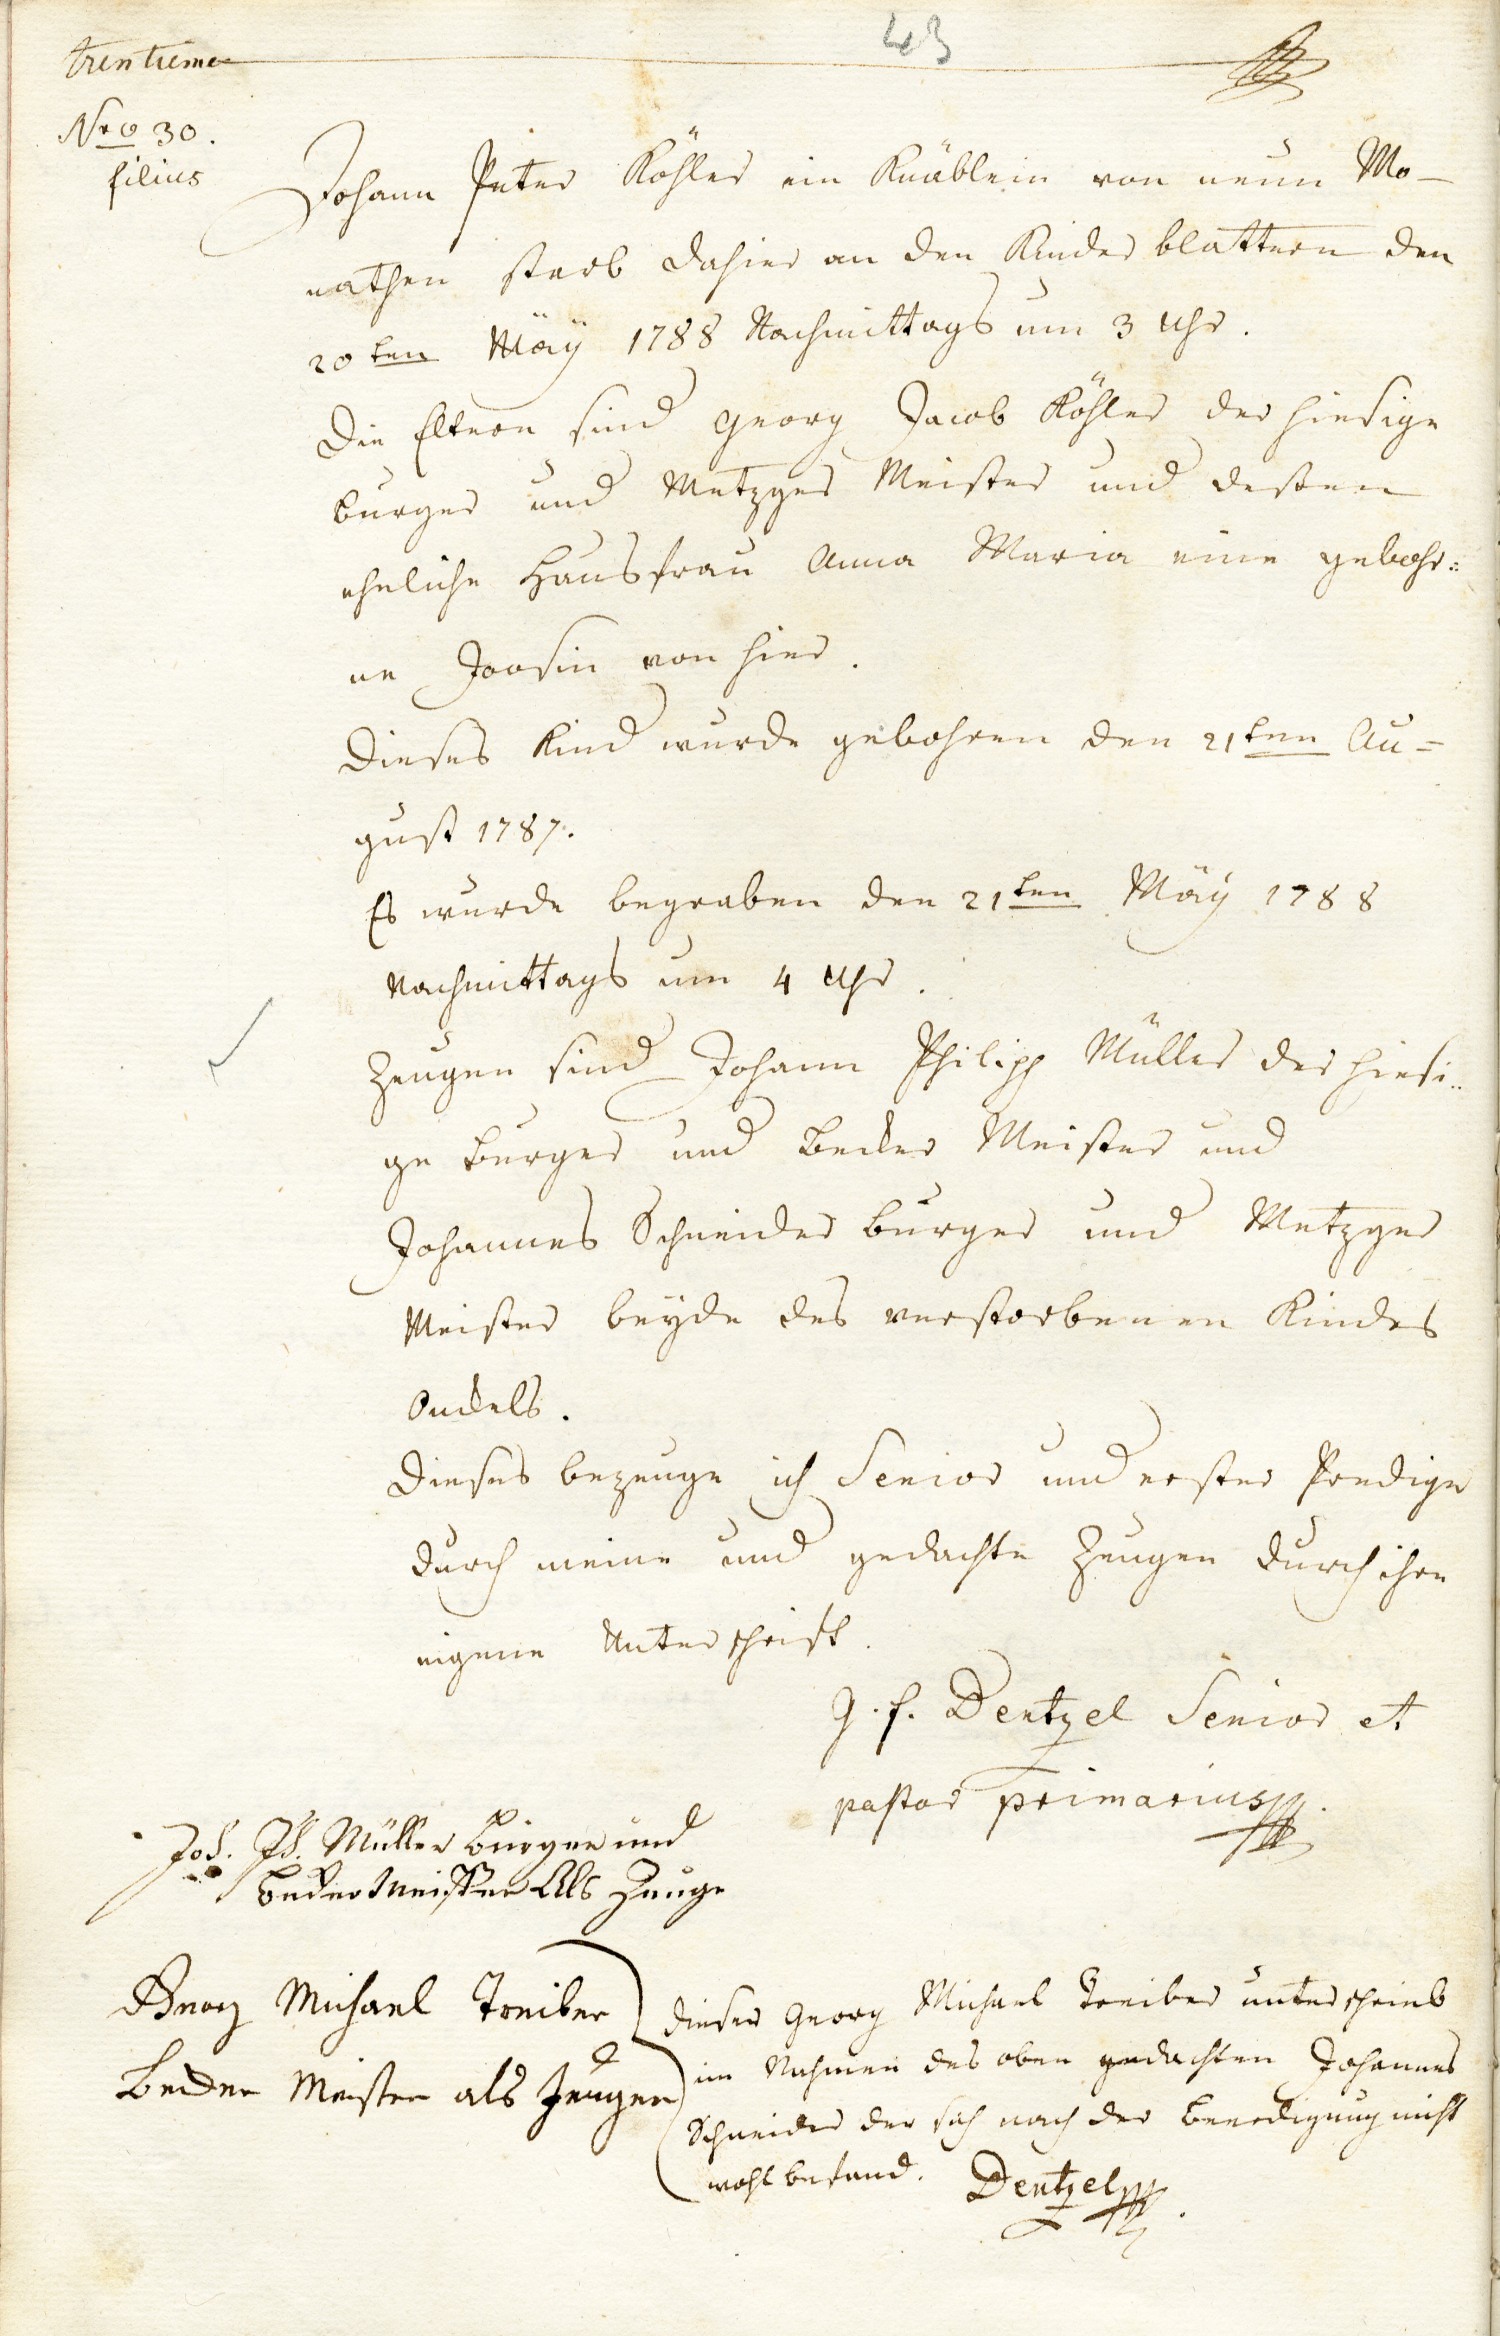 43
trentieme
Nro 30.
filius
Johann Peter Köhler ein Knäblein von neun Mo-
nathen starb dahier an den Kinder blattern den
20ten Mäÿ 1788 Nachmittags um 3 Uhr.
Die Eltern sind Georg Jacob Köhler der hiesige
burger und Metzger Meister und dessen
eheliche Hausfrau Anna Maria eine gebohr=
ne Joosin von hier.
Dieses Kind wurde gebohren den 21ten Au=
gust 1787.
Es wurde begraben den 21ten Mäÿ 1788
Nachmittags um 4 Uhr.
Zeugen sind Johann Philipp Müller der hiesi=
ge burger und Becker Meister und
Johannes Schneider burger und Metzger
Meister beyde des verstorbenen Kindes
Onckels.
Dieses bezeuge ich Senior und erster Prediger
durch meine und gedachte Zeugen durch ihre
eigene Unterschrift.
G. F. Dentzel Senior et
pastor primarius
Joh. Ph. Müller burger und
becker Meister Als Zeuge
Georg Michael Treiber
Becker Meister als Zeugen
dieser Georg Michael Treiber unterschrieb
im Nahmen des oben gedachten Johannes
Schneider der sich nach der Beerdigung nicht
wohl befand. Dentzel